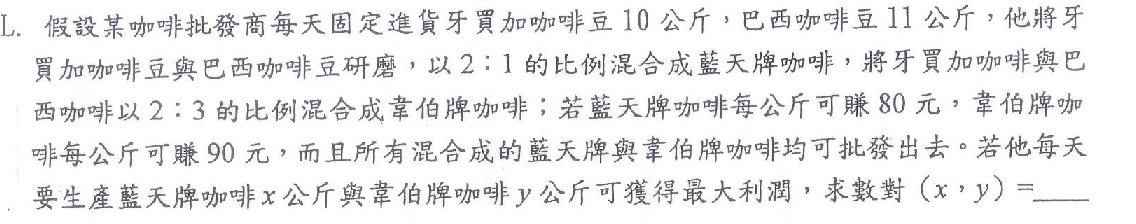 L. 假設某咖啡批發商每天固定進貨牙買加咖啡豆 10 公斤，巴西咖啡豆 11 公斤，他將牙
買加咖啡豆與巴西咖啡豆研磨，以 2：1 的比例混合成藍天牌咖啡，將牙買加咖啡與巴
西咖啡以 2：3 的比例混合成韋伯牌咖啡；若藍天牌咖啡每公斤可賺 80 元，韋伯牌咖
啡每公斤可賺 90 元，而且所有混合成的藍天牌與韋伯牌咖啡均可批發出去。若他每天
要生產藍天牌咖啡 x 公斤與韋伯牌咖啡 y 公斤可獲得最大利潤，求數對（x，y）＝____